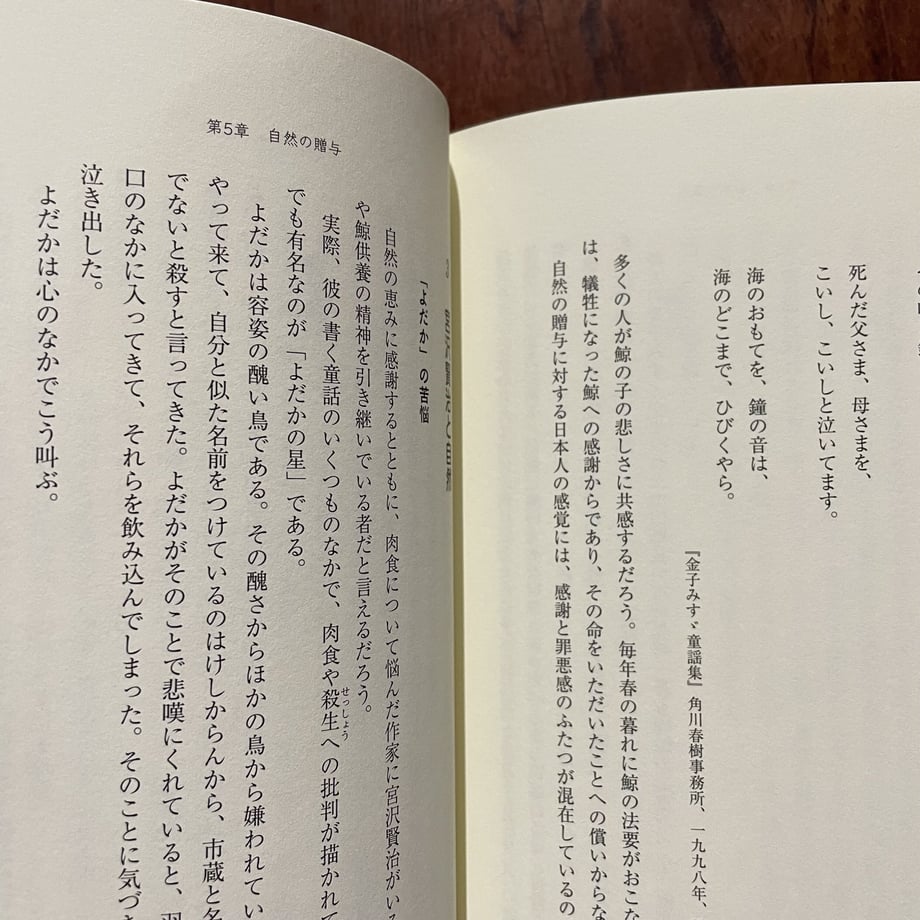 死んだ父さま、母さまを、
こいし、こいしと泣いてます。
海のおもてを、鐘の音は、
海のどこまで、ひびくやら。
『金子みすゞ童謡集』角川春樹事務所、一九九八年、
多くの人が鯨の子の悲しさに共感するだろう。毎年春の暮れに鯨の法要がおこな
は、犠牲になった鯨への感謝からであり、その命をいただいたことへの償いからな
自然の贈与に対する日本人の感覚には、感謝と罪悪感のふたつが混在しているの
第5章 自然の贈与
3 宮沢賢治と自然
「よだか」の苦悩
自然の恵みに感謝するとともに、肉食について悩んだ作家に宮沢賢治がいる
や鯨供養の精神を引き継いでいる者だと言えるだろう。
実際、彼の書く童話のいくつものなかで、肉食や殺生への批判が描かれて
せっしょう
でも有名なのが「よだかの星」である。
よだかは容姿の醜い鳥である。その醜さからほかの鳥から嫌われてい
やって来て、自分と似た名前をつけているのはけしからんから、市蔵と名
でないと殺すと言ってきた。よだかがそのことで悲嘆にくれていると、羽
口のなかに入ってきて、それらを飲み込んでしまった。そのことに気づき
泣き出した。
よだかは心のなかでこう叫ぶ。